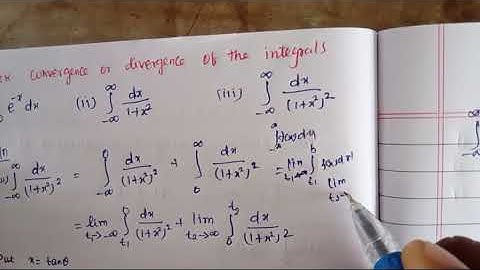 convergence or divergence of the integrals
e^{-x} dx (ii) ∫_{-∞}^{∞} dx/(1+x²) (iii) ∫_{-∞}^{∞} dx/(1+x²)²
∫_{-∞}^{∞} dx/(1+x²)² = ∫_{-∞}^{0} dx/(1+x²)² + ∫_{0}^{∞} dx/(1+x²)²
= lim_{t₁→-∞} ∫_{t₁}^{0} dx/(1+x²)² + lim_{t₂→∞} ∫_{0}^{t₂} dx/(1+x²)²
= lim
lim
Put x = tanθ